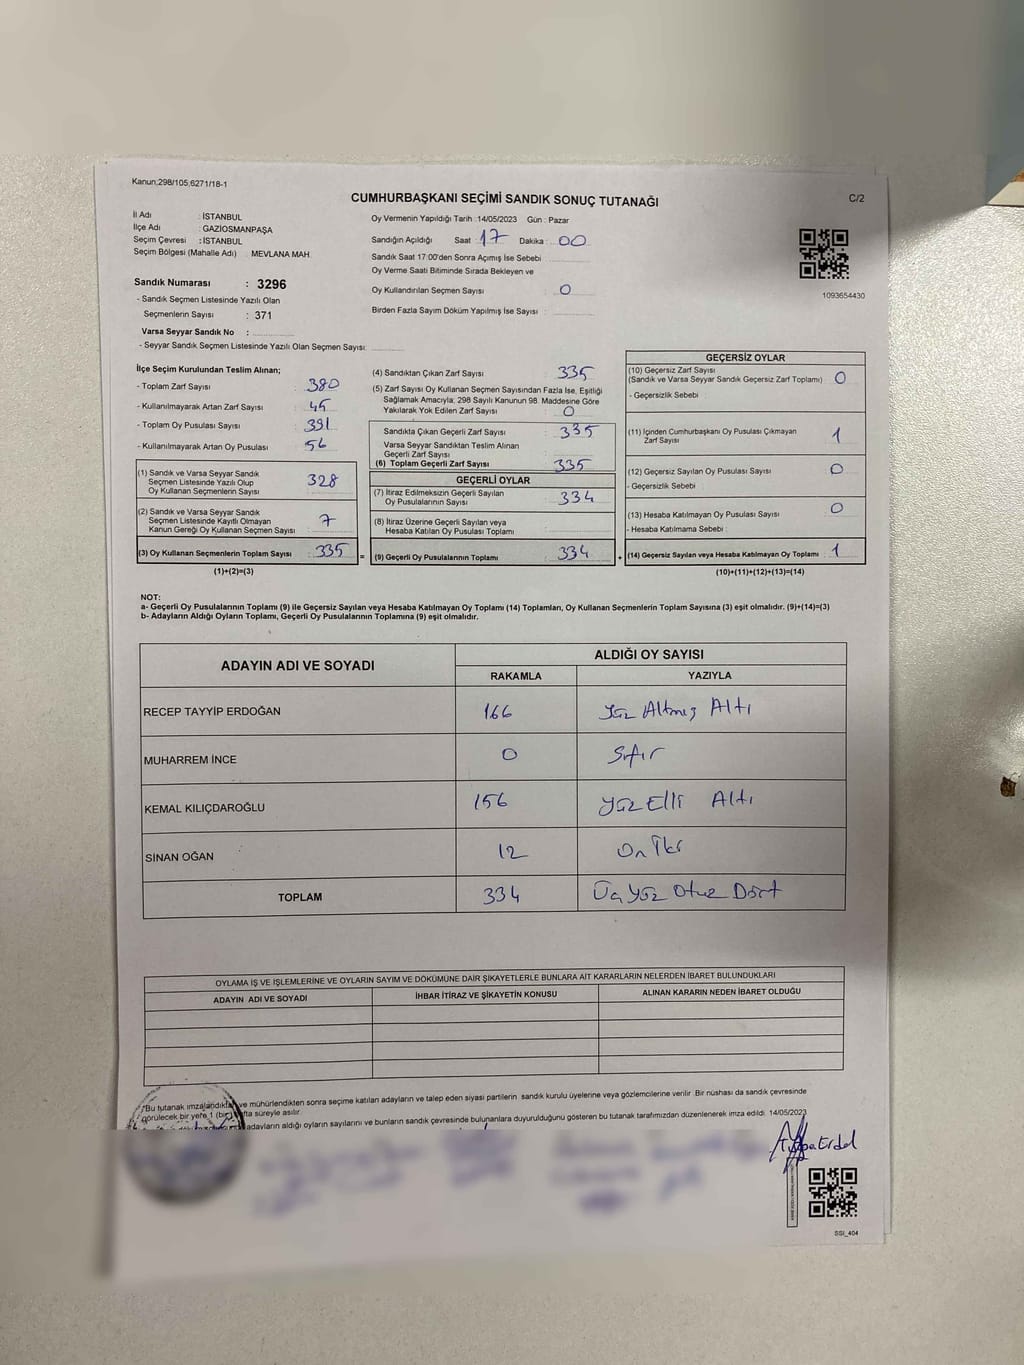 Kanun;298/105,6271/18-1
CUMHURBAŞKANI SEÇİMİ SANDIK SONUÇ TUTANAĞI
C/2
İl Adı : İSTANBUL
İlçe Adı : GAZİOSMANPAŞA
Seçim Çevresi : İSTANBUL
Seçim Bölgesi (Mahalle Adı) MEVLANA MAH.
Sandık Numarası : 3296
- Sandık Seçmen Listesinde Yazılı Olan
Seçmenlerin Sayısı : 371
Varsa Seyyar Sandık No :
- Seyyar Sandık Seçmen Listesinde Yazılı Olan Seçmen Sayısı:
Oy Vermenin Yapıldığı Tarih :14/05/2023 Gün : Pazar
Sandığın Açıldığı Saat 17 Dakika : 00
Sandık Saat 17:00'den Sonra Açımış İse Sebebi
Oy Verme Saati Bitiminde Sırada Bekleyen ve
Oy Kullandırılan Seçmen Sayısı : 0
Birden Fazla Sayım Döküm Yapılmış İse Sayısı :
1093654430
İlçe Seçim Kurulundan Teslim Alınan;
- Toplam Zarf Sayısı : 380
- Kullanılmayarak Artan Zarf Sayısı : 45
- Toplam Oy Pusulası Sayısı : 391
- Kullanılmayarak Artan Oy Pusulası : 56
(1) Sandık ve Varsa Seyyar Sandık
Seçmen Listesinde Yazılı Olup
Oy Kullanan Seçmenlerin Sayısı : 328
(2) Sandık ve Varsa Seyyar Sandık
Seçmen Listesinde Kayıtlı Olmayan
Kanun Gereği Oy Kullanan Seçmen Sayısı : 7
(3) Oy Kullanan Seçmenlerin Toplam Sayısı : 335
(1)+(2)=(3)
(4) Sandıktan Çıkan Zarf Sayısı : 335
(5) Zarf Sayısı Oy Kullanan Seçmen Sayısından Fazla İse, Eşitliği
Sağlamak Amacıyla; 298 Sayılı Kanunun 98. Maddesine Göre
Yakılarak Yok Edilen Zarf Sayısı : 0
Sandıkta Çıkan Geçerli Zarf Sayısı : 335
Varsa Seyyar Sandıktan Teslim Alınan
Geçerli Zarf Sayısı :
(6) Toplam Geçerli Zarf Sayısı : 335
GEÇERLİ OYLAR
(7) İtiraz Edilmeksizin Geçerli Sayılan
Oy Pusulalarının Sayısı : 334
(8) İtiraz Üzerine Geçerli Sayılan veya
Hesaba Katılan Oy Pusulası Toplamı :
= (9) Geçerli Oy Pusulalarının Toplamı : 334
GEÇERSİZ OYLAR
(10) Geçersiz Zarf Sayısı
(Sandık ve Varsa Seyyar Sandık Geçersiz Zarf Toplamı) : 0
- Geçersizlik Sebebi :
(11) İçinden Cumhurbaşkanı Oy Pusulası Çıkmayan
Zarf Sayısı : 1
(12) Geçersiz Sayılan Oy Pusulası Sayısı : 0
- Geçersizlik Sebebi :
(13) Hesaba Katılmayan Oy Pusulası Sayısı : 0
- Hesaba Katılmama Sebebi :
+ (14) Geçersiz Sayılan veya Hesaba Katılmayan Oy Toplamı : 1
(10)+(11)+(12)+(13)=(14)
NOT:
a- Geçerli Oy Pusulalarının Toplamı (9) ile Geçersiz Sayılan veya Hesaba Katılmayan Oy Toplamı (14) Toplamları, Oy Kullanan Seçmenlerin Toplam Sayısına (3) eşit olmalıdır. (9)+(14)=(3)
b- Adayların Aldığı Oyların Toplamı, Geçerli Oy Pusulalarının Toplamına (9) eşit olmalıdır.
ADAYIN ADI VE SOYADI
ALDIĞI OY SAYISI
RAKAMLA YAZIYLA
RECEP TAYYİP ERDOĞAN 166 Yüz Altmış Altı
MUHARREM İNCE 0 Sıfır
KEMAL KILIÇDAROĞLU 156 Yüz Elli Altı
SİNAN OĞAN 12 On İki
TOPLAM 334 Üç Yüz Otuz Dört
OYLAMA İŞ VE İŞLEMLERİNE VE OYLARIN SAYIM VE DÖKÜMÜNE DAİR ŞİKAYETLERLE BUNLARA AİT KARARLARIN NELERDEN İBARET BULUNDUKLARI
ADAYIN ADI VE SOYADI İHBAR İTİRAZ VE ŞİKAYETİN KONUSU ALINAN KARARIN NEDEN İBARET OLDUĞU
"Bu tutanak imzalandıktan ve mühürlendikten sonra seçime katılan adayların ve talep eden siyasi partilerin sandık kurulu üyelerine ve gözlemcilerine verilir. Bir nüshası da sandık çevresinde
görülecek bir yere 1 (bir) hafta süreyle asılır.
adayların aldığı oyların sayılarını ve bunların sandık çevresinde bulunanlara duyurulduğunu gösteren bu tutanak tarafımızdan düzenlenerek imza edildi. 14/05/2023
SSI_404